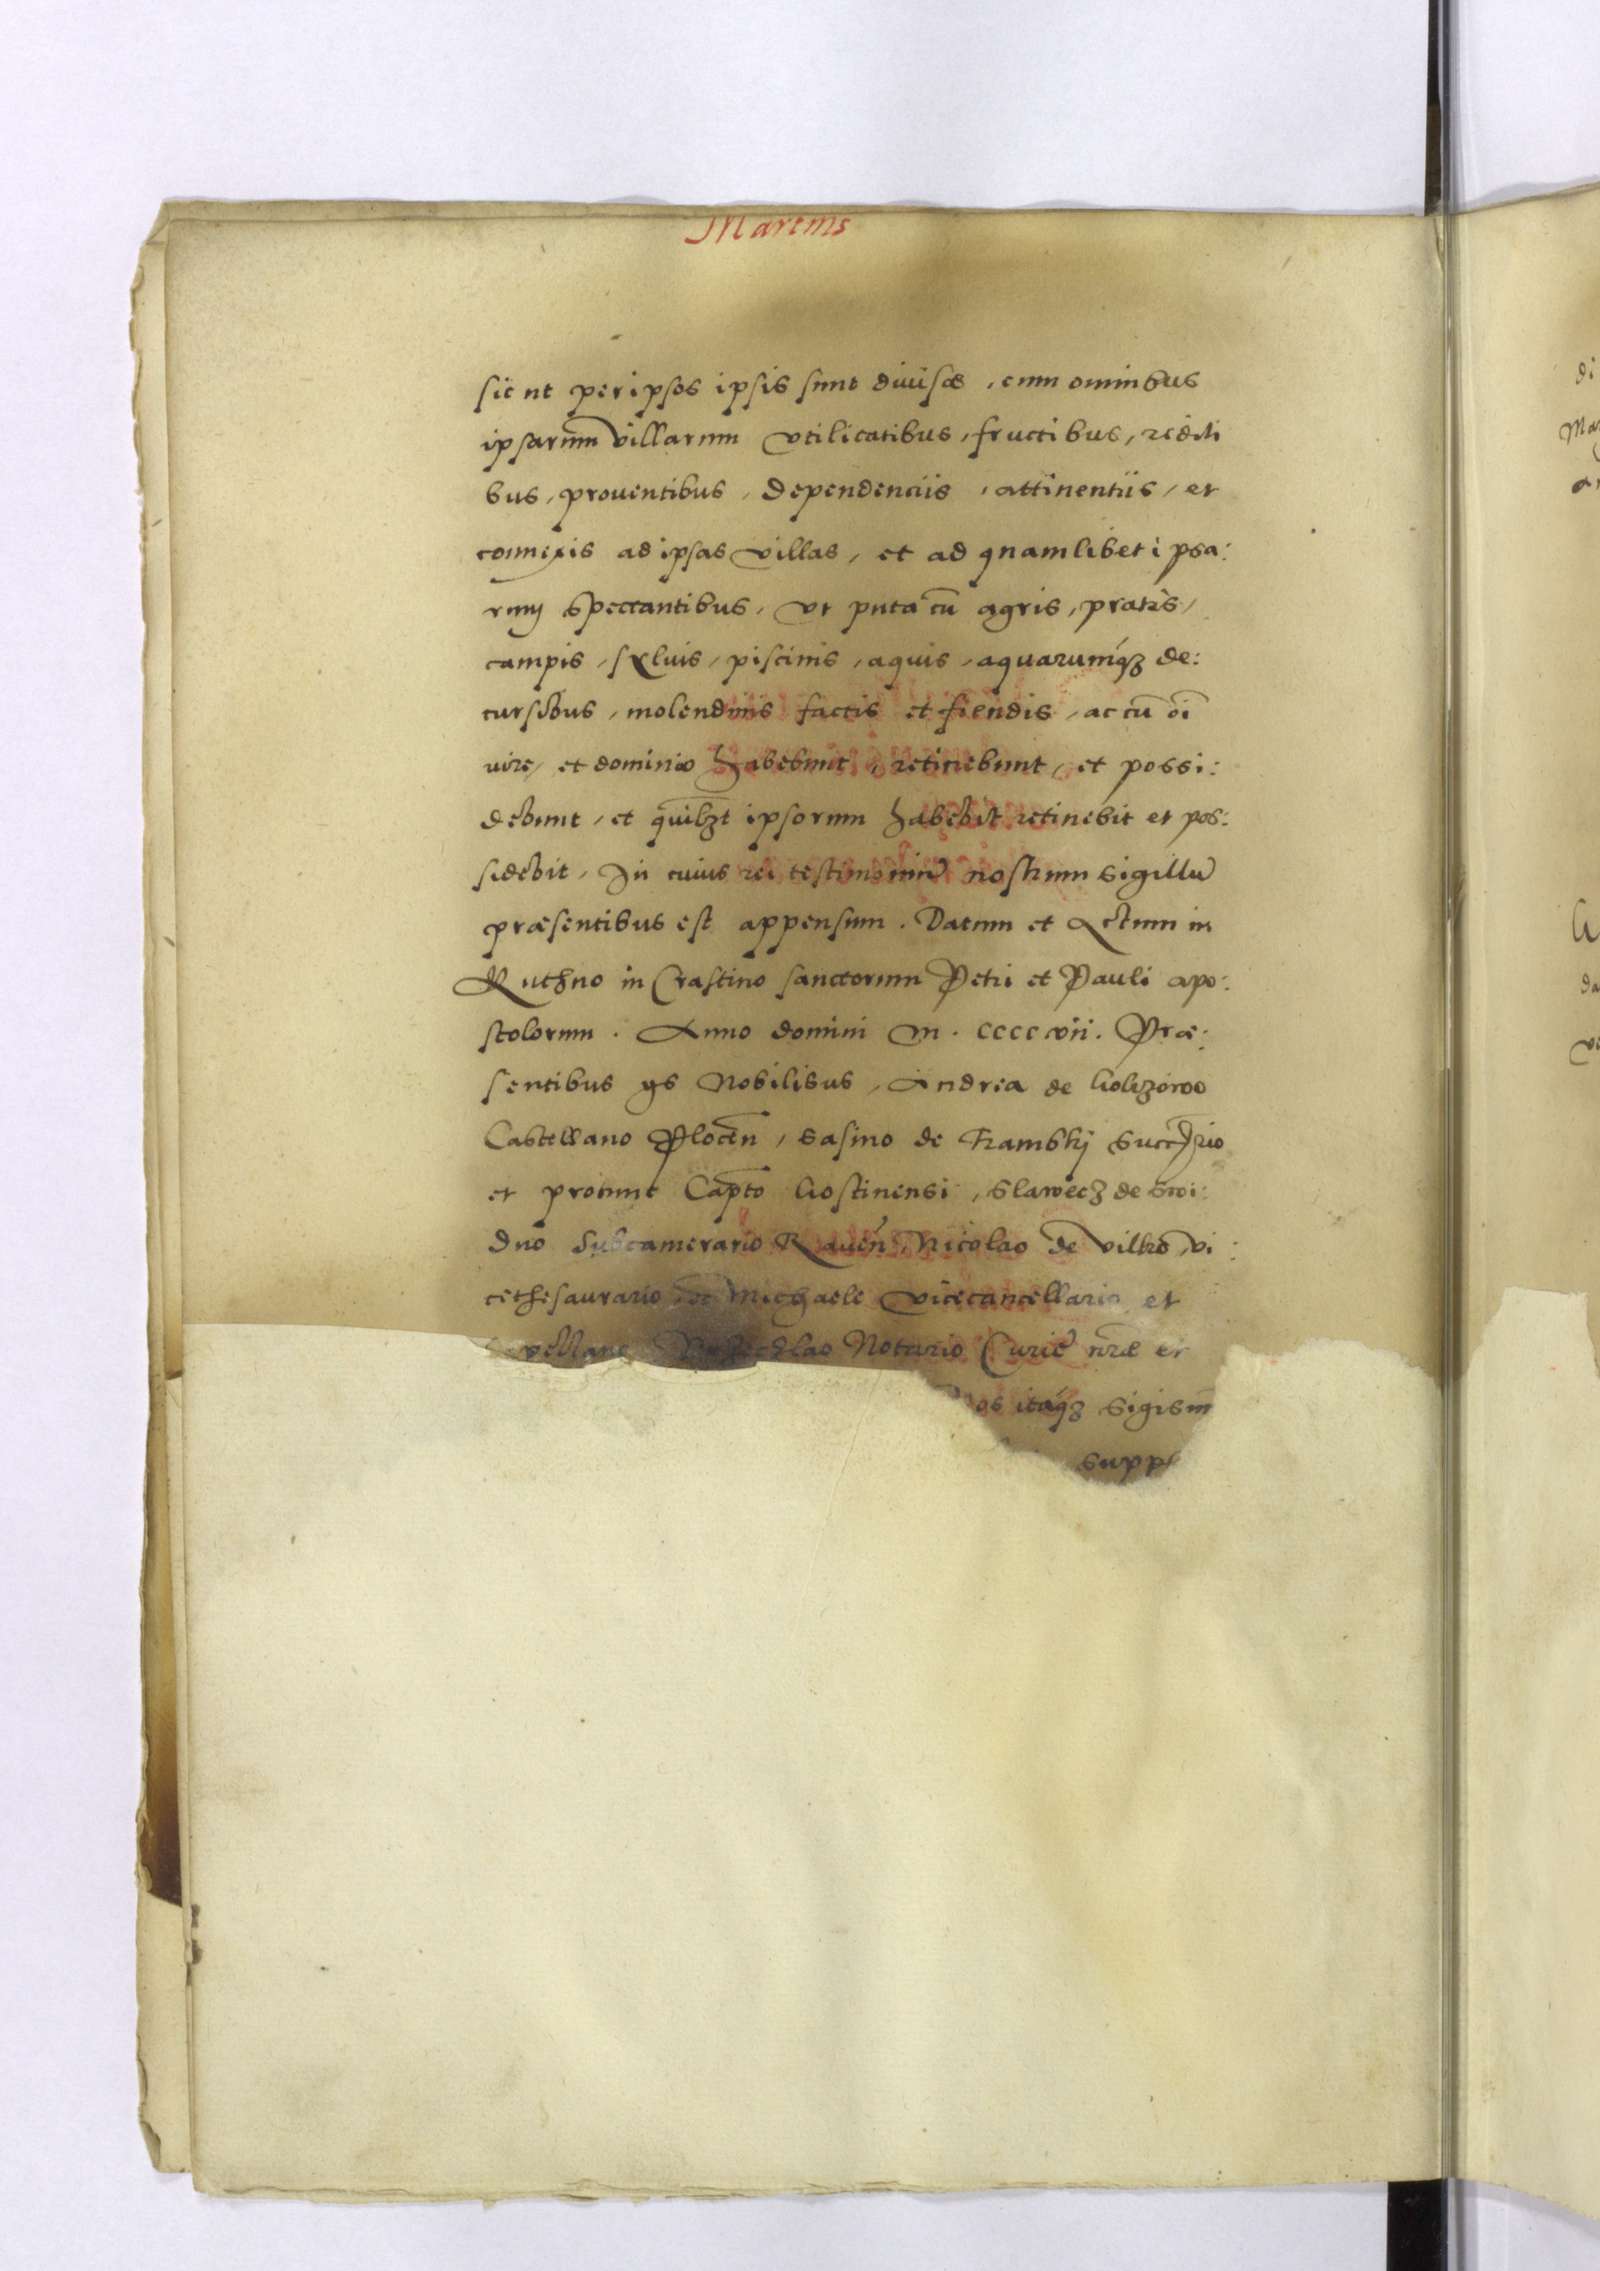 Martinis
sicut per ipsos ipsis sunt diuisæ, cum omnibus
ipsarum villarum vtilitatibus, fructibus, rediti
bus, prouentibus, dependenciis, attinentiis, et
connexis ad ipsas villas, et ad quamlibet ipsa:
rum spectantibus, vt puta cū agris, pratis,
campis, syluis, piscinis, aquis, aquarumq́ʒ de:
cursibus, molendinis factis et fiendis, ac cū oī
iure, et dominio habebunt, retinebunt, et possi:
debunt, et quilibʒt ipsorum habebit retinebit et pos:
sidebit, In cuius rei testimoniū nostrum sigillū
præsentibus est appensum. Datum et Actum in
Kuthno in Crastino sanctorum Petri et Pauli apo:
stolorum. Anno domini M. CCCC xvii. Præ:
sentibus Nobilibus, Andrea de
Castellano Plocēn, Sasino de
et protunc Capto Gostinensi, Slawecz de Swi:
dno Subcamerario Rauēn, Nicolao de vi:
cethesaurario, Michaele vicecancellario et
Notario Curiē nrāe et
itaq́ʒ Sigism
supp